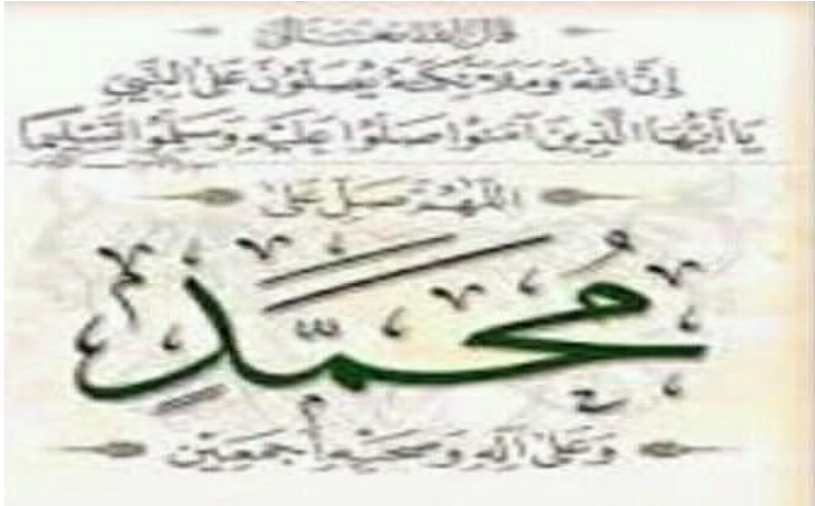 قال الله تعالى
إن الله وملائكته يصلون على النبي
يا أيها الذين آمنوا صلوا عليه وسلموا تسليما
اللهم صل على
مُحَمَّدٍ
وعلى آله وصحبه أجمعين